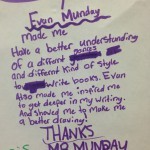 Evan Munday
made me
Have a better understanding
of a diffrent
and diffrent Kind of style
to Write books. Evan
Also made me inspired me
to get deeper in my writing.
And showed me to make me
a better drawing.
THANKS
MR MUNDAY